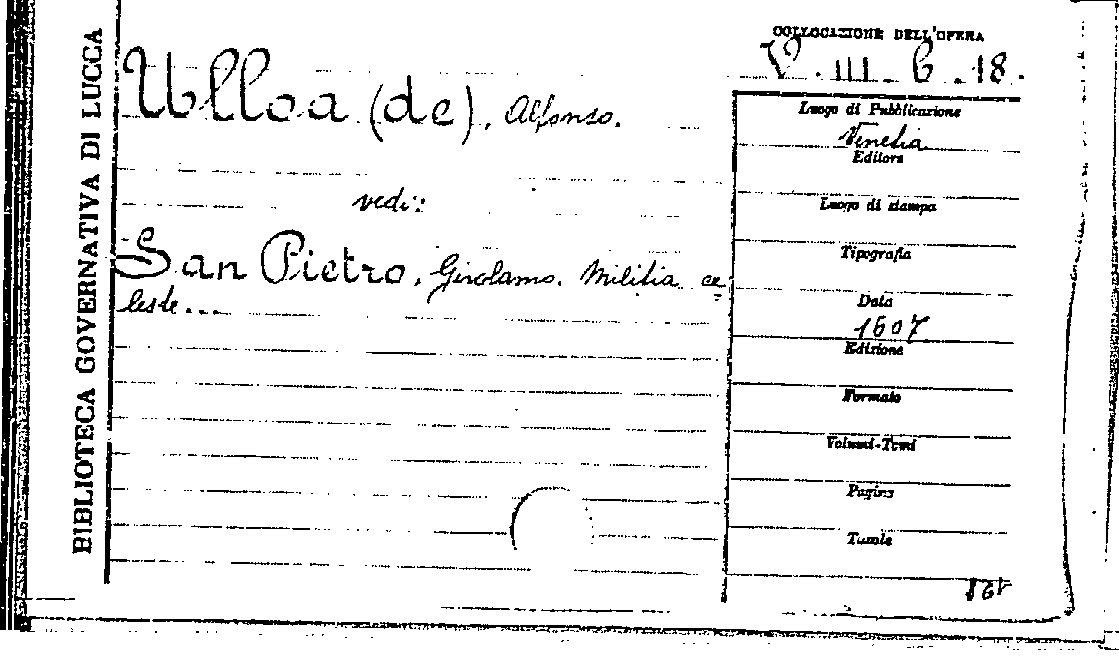 BIBLIOTECA GOVERNATIVA DI LUCCA
COLLOCAZIONE DELL'OPERA
V. III. 6. 18.
Ulloa (de), Alfonso.
vedi:
San Pietro, Girolamo. Militia ce=
leste...
Luogo di Pubblicazione
Venetia
Editore
Luogo di stampa
Tipografia
Data
1607
Edizione
Formato
Volumi-Tomi
Pagine
Tavole